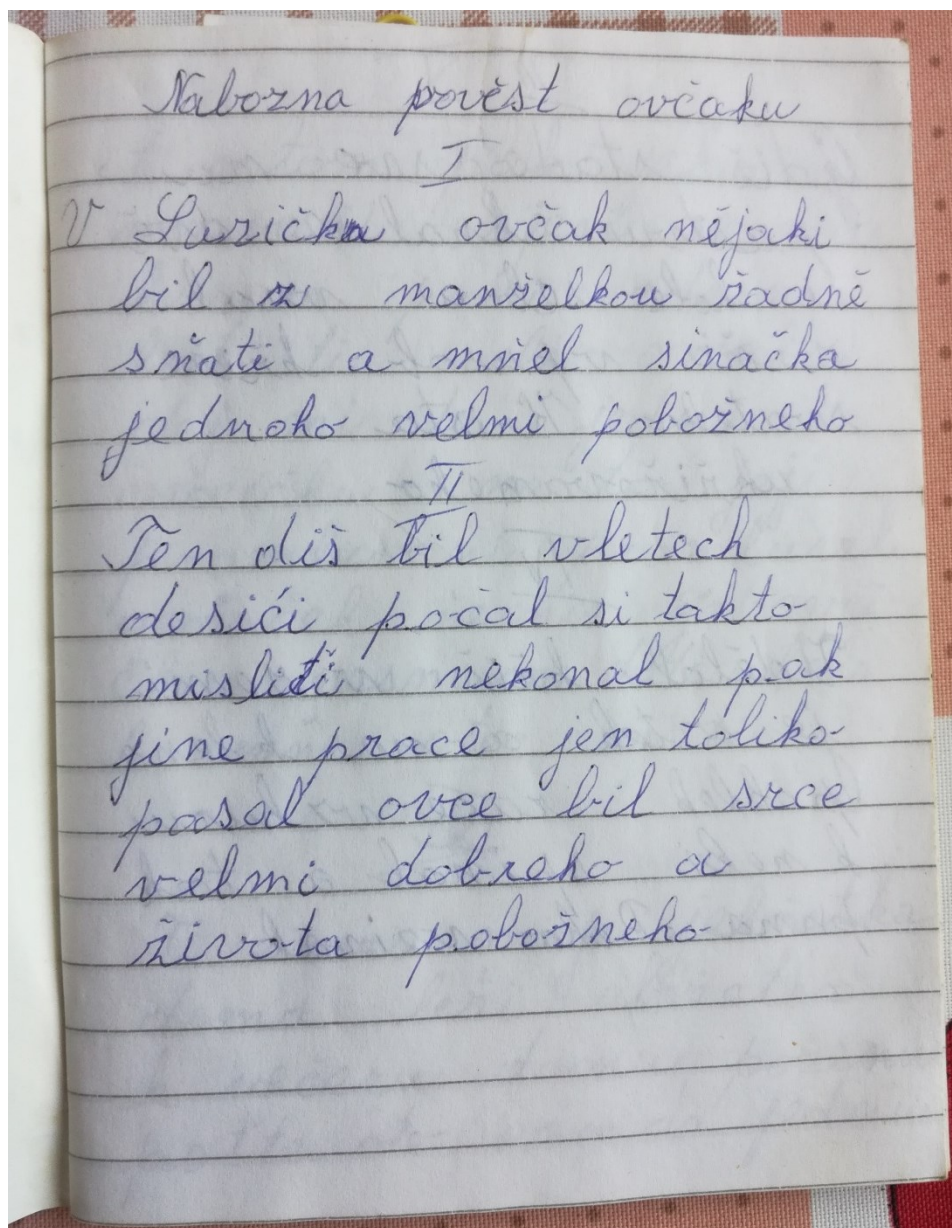 Nabozna pověst ovčaku
I
V Lazičku ovčak nějaki
bil z manželkou žadně
sňati a mňel sinačka
jednoho velmi pobožneho
II
Ten diš bil vletech
desići počal si takto
misliti nekonal pak
jine prace jen toliko
pasal ovce bil srce
velmi dobreho a
života pobožneho